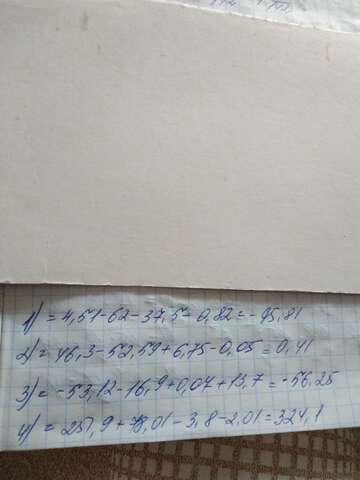 1) = 4,51-62-37,5-0,82=-95,81
2) = 46,3-52,59+6,75-0,05=0,41
3) = -53,12-16,9+0,07+13,7=-56,25
4) = 251,9+78,01-3,8-2,01=324,1